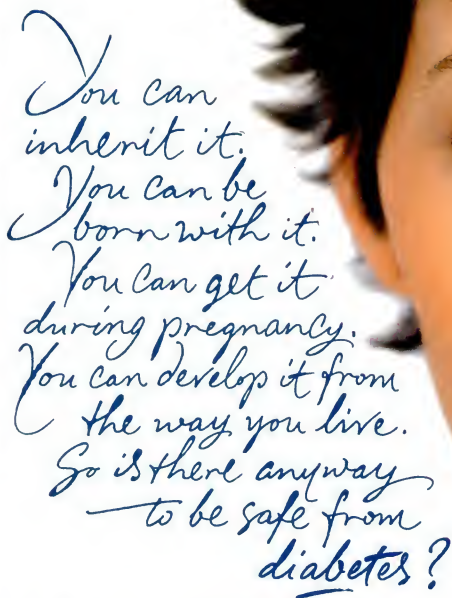 You can
inherit it.
You can be
born with it.
You can get it
during pregnancy.
You can develop it from
the way you live.
So is there anyway
to be safe from
diabetes?